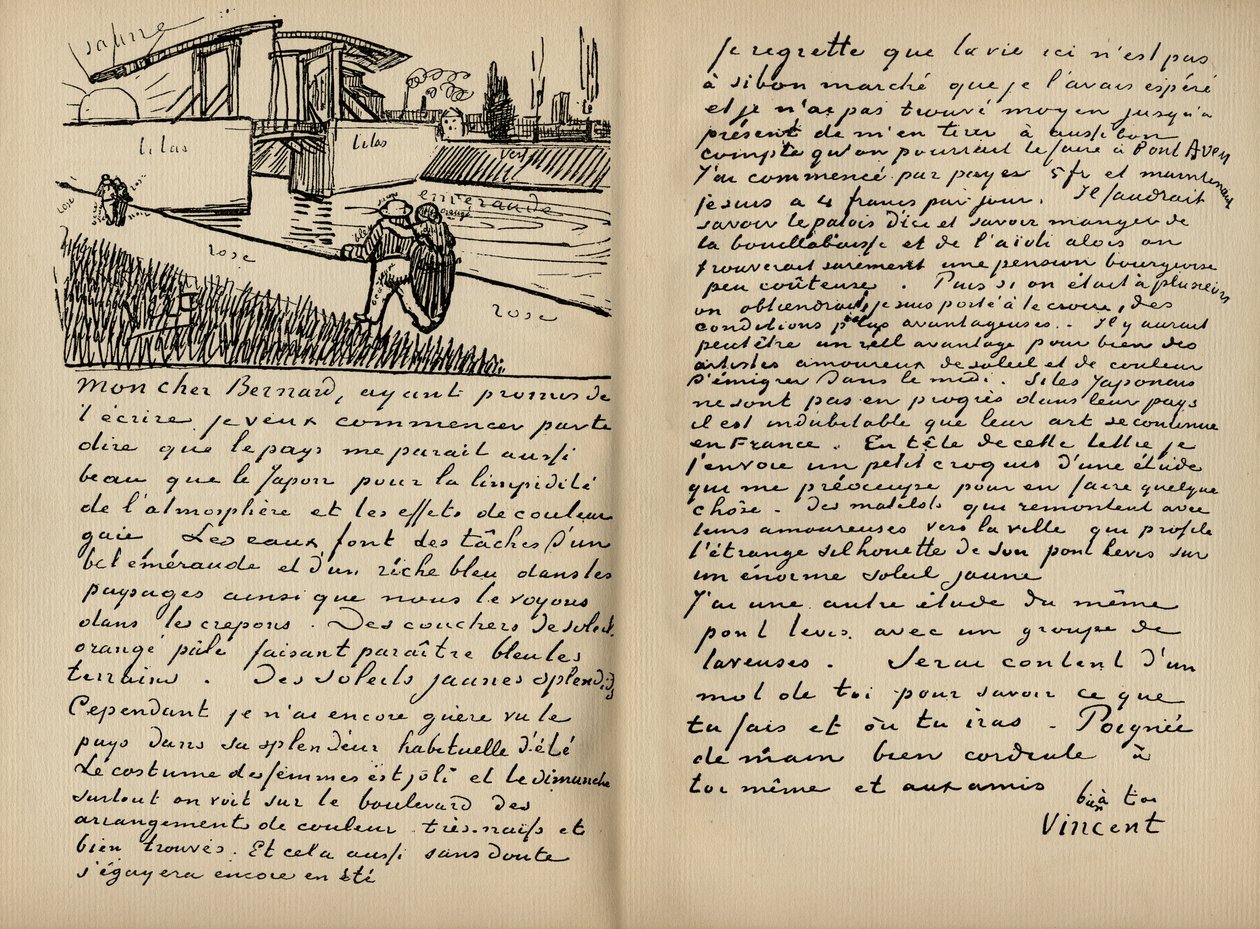 jaune
lilas
lilas
vert
émeraude
rose
rose
rose
Mon cher Bernard, ayant promis de
t'écrire je veux commencer par te
dire que le pays me parait aussi
beau que le Japon pour la limpidité
de l'atmosphère et les effets de couleur
gaie Les eaux font des tâches d'un
bel éméraude et d'un riche bleu dans les
paysages ainsi que nous le voyons
dans les crepons. Des couchers de soleil
orangé pâle faisant paraître bleu les
terrains. Des soleils jaunes splendides
Cependant je n'ai encore guère vu le
pays dans sa splendeur habituelle d'été
Le costume des femmes est joli et le dimanche
surtout on voit sur le boulevard des
arrangements de couleur très naifs et
bien trouvés. Et cela aussi sans doute
s'égayera encore en été
Je regrette que la vie ici n'est pas
à si bon marché que je l'avais espéré
et je n'ai pas trouvé moyen jusqu'à
présent de m'en tirer à aussi bon
compte qu'on pourrait le faire à Pont Aven
J'ai commencé par payer 5 fr et maintenant
je suis à 4 francs par jour. Il faudrait
savoir le patois d'ici et savoir manger de
la bouillabaisse et de l'aïoli alors on
trouverait surement une pension bourgeoise
peu coûteuse. Puis si on était à plusieurs
on obtiendrait, je suis porté à le croire, des
conditions plus avantageuses. Il y aurait
peut être un réel avantage pour bien des
artistes amoureux de soleil et de couleur
d'émigrer dans le midi. Si les Japonais
ne sont pas en progrès dans leur pays
il est indubitable que leur art se continue
en France. En tête de cette lettre je
t'envoie un petit croquis d'une étude
qui me préoccupe pour en faire quelque
chôse - Des matelots qui remontent avec
leurs amoureuses vers la ville qui profile
l'étrange silhouette de son pont levis sur
un énorme soleil jaune
J'ai une autre étude du même
pont levis avec un groupe de
laveuses. Serai content d'un
mot de toi pour savoir ce que
tu fais et où tu iras - Poignée
de main bien cordiale à
toi même et aux amis
bien à toi
Vincent